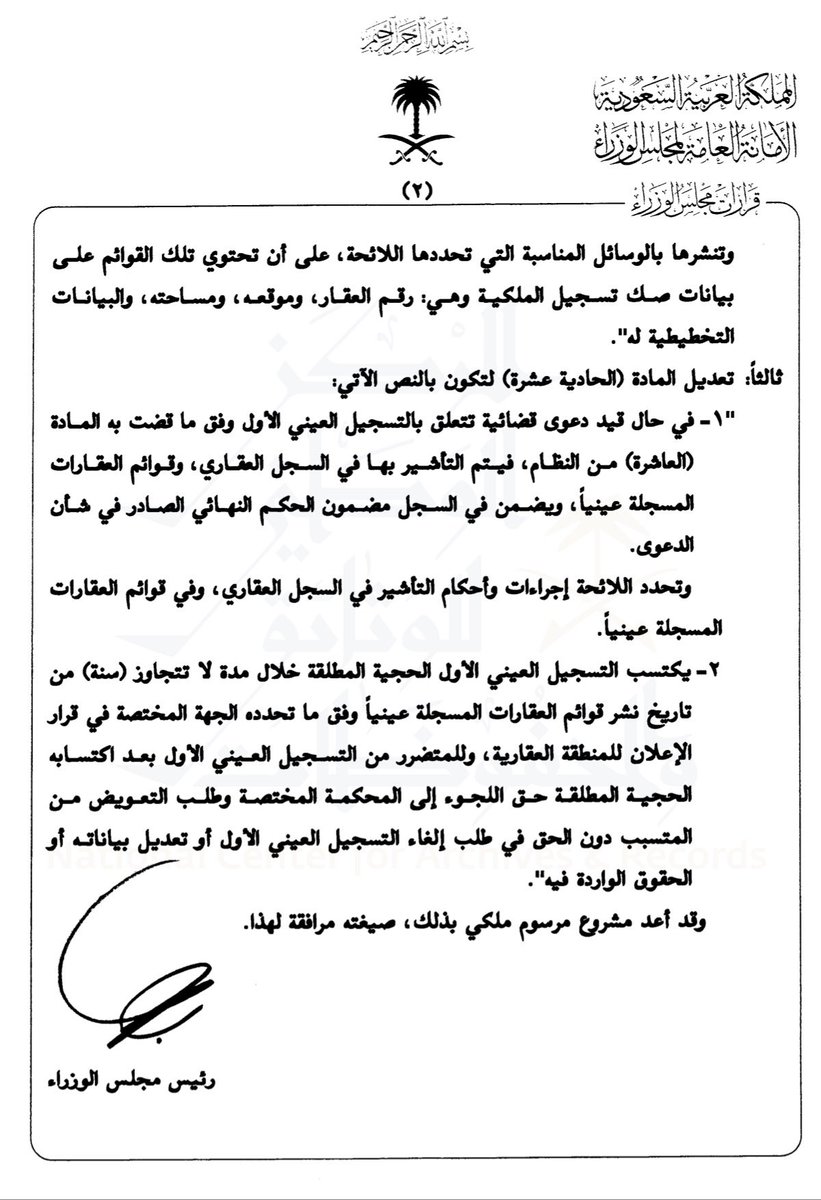 بسم الله الرحمن الرحيم
المملكة العربية السعودية
الأمانة العامة لمجلس الوزراء
(٢)
قرارات مجلس الوزراء
وتنشرها بالوسائل المناسبة التي تحددها اللائحة، على أن تحتوي تلك القوائم على
بيانات صك تسجيل الملكية وهي: رقم العقار، وموقعه، ومساحته، والبيانات
التخطيطية له".
ثالثاً: تعديل المادة (الحادية عشرة) لتكون بالنص الآتي:
"١- في حال قيد دعوى قضائية تتعلق بالتسجيل العيني الأول وفق ما قضت به المادة
(العاشرة) من النظام، فيتم التأشير بها في السجل العقاري، وقوائم العقارات
المسجلة عينياً، ويضمن في السجل مضمون الحكم النهائي الصادر في شأن
الدعوى.
وتحدد اللائحة إجراءات وأحكام التأشير في السجل العقاري، وفي قوائم العقارات
المسجلة عينياً.
٢- يكتسب التسجيل العيني الأول الحجية المطلقة خلال مدة لا تتجاوز (سنة) من
تاريخ نشر قوائم العقارات المسجلة عينياً وفق ما تحدده الجهة المختصة في قرار
الإعلان للمنطقة العقارية، وللمتضرر من التسجيل العيني الأول بعد اكتسابه
الحجية المطلقة حق اللجوء إلى المحكمة المختصة وطلب التعويض من
المتسبب دون الحق في طلب إلغاء التسجيل العيني الأول أو تعديل بياناته أو
الحقوق الواردة فيه".
وقد أعد مشروع مرسوم ملكي بذلك، صيغته مرافقة لهذا.
رئيس مجلس الوزراء
المركز
الوطني
للوثائق
والمحفوظات
National Center for Archives & Records